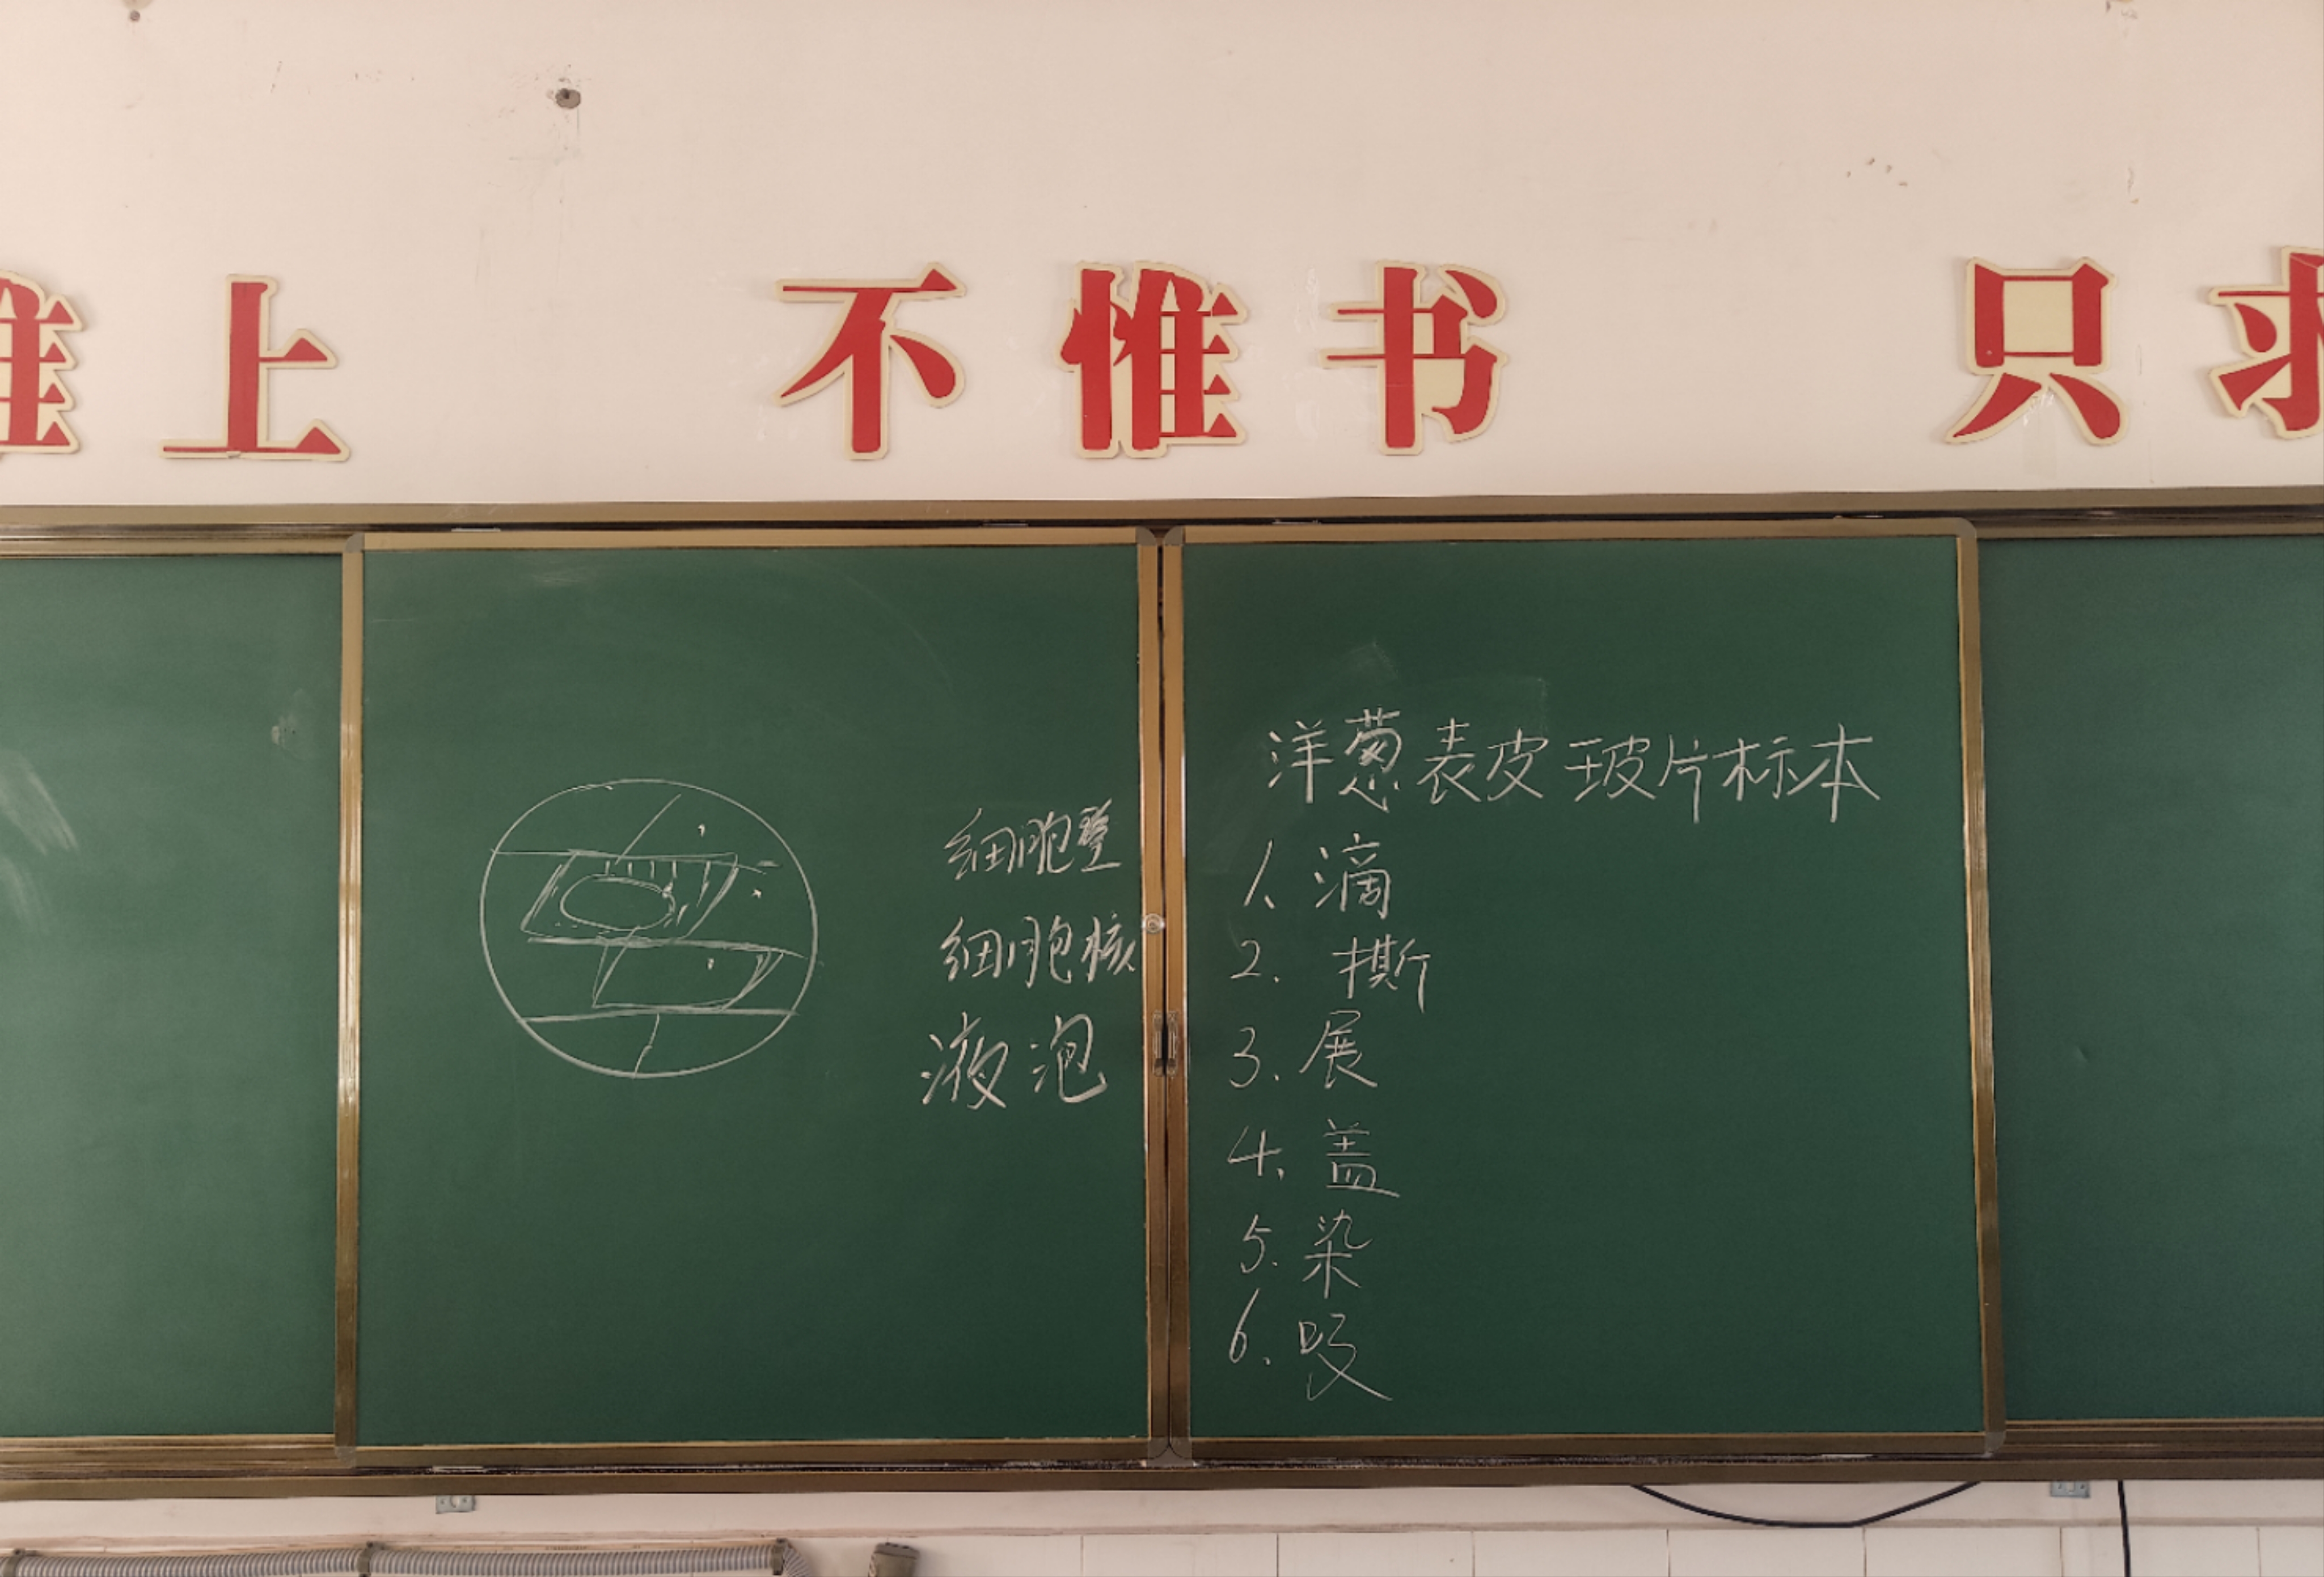 惟上 不惟书 只求
细胞壁
细胞核
液泡
洋葱表皮玻片标本
1、滴
2. 撕
3. 展
4、盖
5. 染
6. 吸